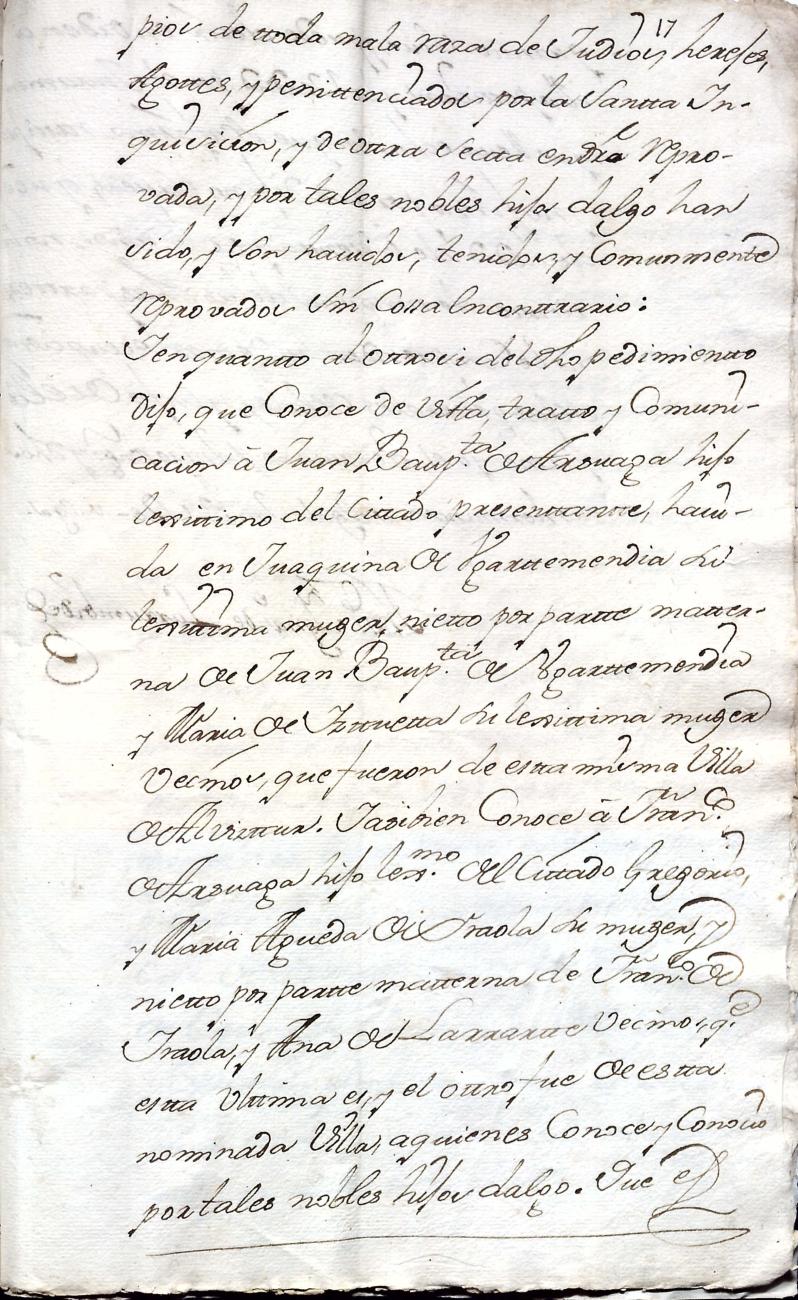 17
pios de ttoda mala raza de Judios, herejes,
Agottes, y penittenciados por la Santta In-
quisicion, y de ottra Sectta en dr̃e repro-
vada, y por tales nobles hijos dalgo han
sido, y son hauidos, tenidos, y Comunmente
reprovados Sin Cossa Encontrario:
J en quantto al Ottrosi del dho pedimientto
Dijo, que Conoce de Vistta, tratto y Comuni-
cacion â Juan Baup.ta de Arsuaga hijo
lexittimo del Cittado presenttante, haui-
da en Juaquina de Ugarttemendia su
lexittima muger, nietto por partte matter-
na de Juan Baup.ta de Ugarttemendia
y Maria de Ytuetta su lexittima muger
Vecinos, que fueron de estta misma Villa
de Alvizttur. Tambien Conoce â Fran.co
de Arsuaga hijo lex.mo del Cittado Gregorio,
y Maria Agueda de Yraola su muger, y
nietto por partte matterna de Fran.co de
Yraola, y Ana de Larrartte Vecinos, q.e
estta Ulttima es, y el ottro fue de estta
nominada Villa, a quienes Conoce y Conocio
por tales nobles hijos dalgo. Que es